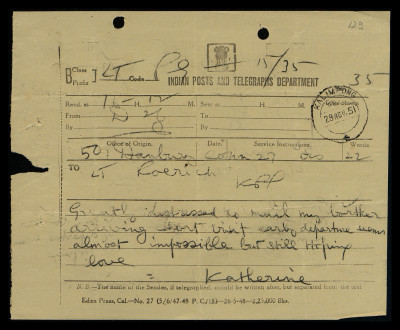 129
B Class
Prefix LT Code
15/35
INDIAN POSTS AND TELEGRAPHS DEPARTMENT
35
Recd. at H. M. Sent at H. M.
From To
By By
KALIMPONG
29 AUG 51
Office of Origin. Date. Service Instructions. Words
50 Hanbury 22
TO LT Roerich
KPP
Greatly distressed no mail my brother
arriving short visit early departure seems
almost impossible but still hoping
love
= Katherine
N. B.—The name of the Sender, if telegraphed, should be written after, but separated from the text
Eden Press, Cal.—No. 27